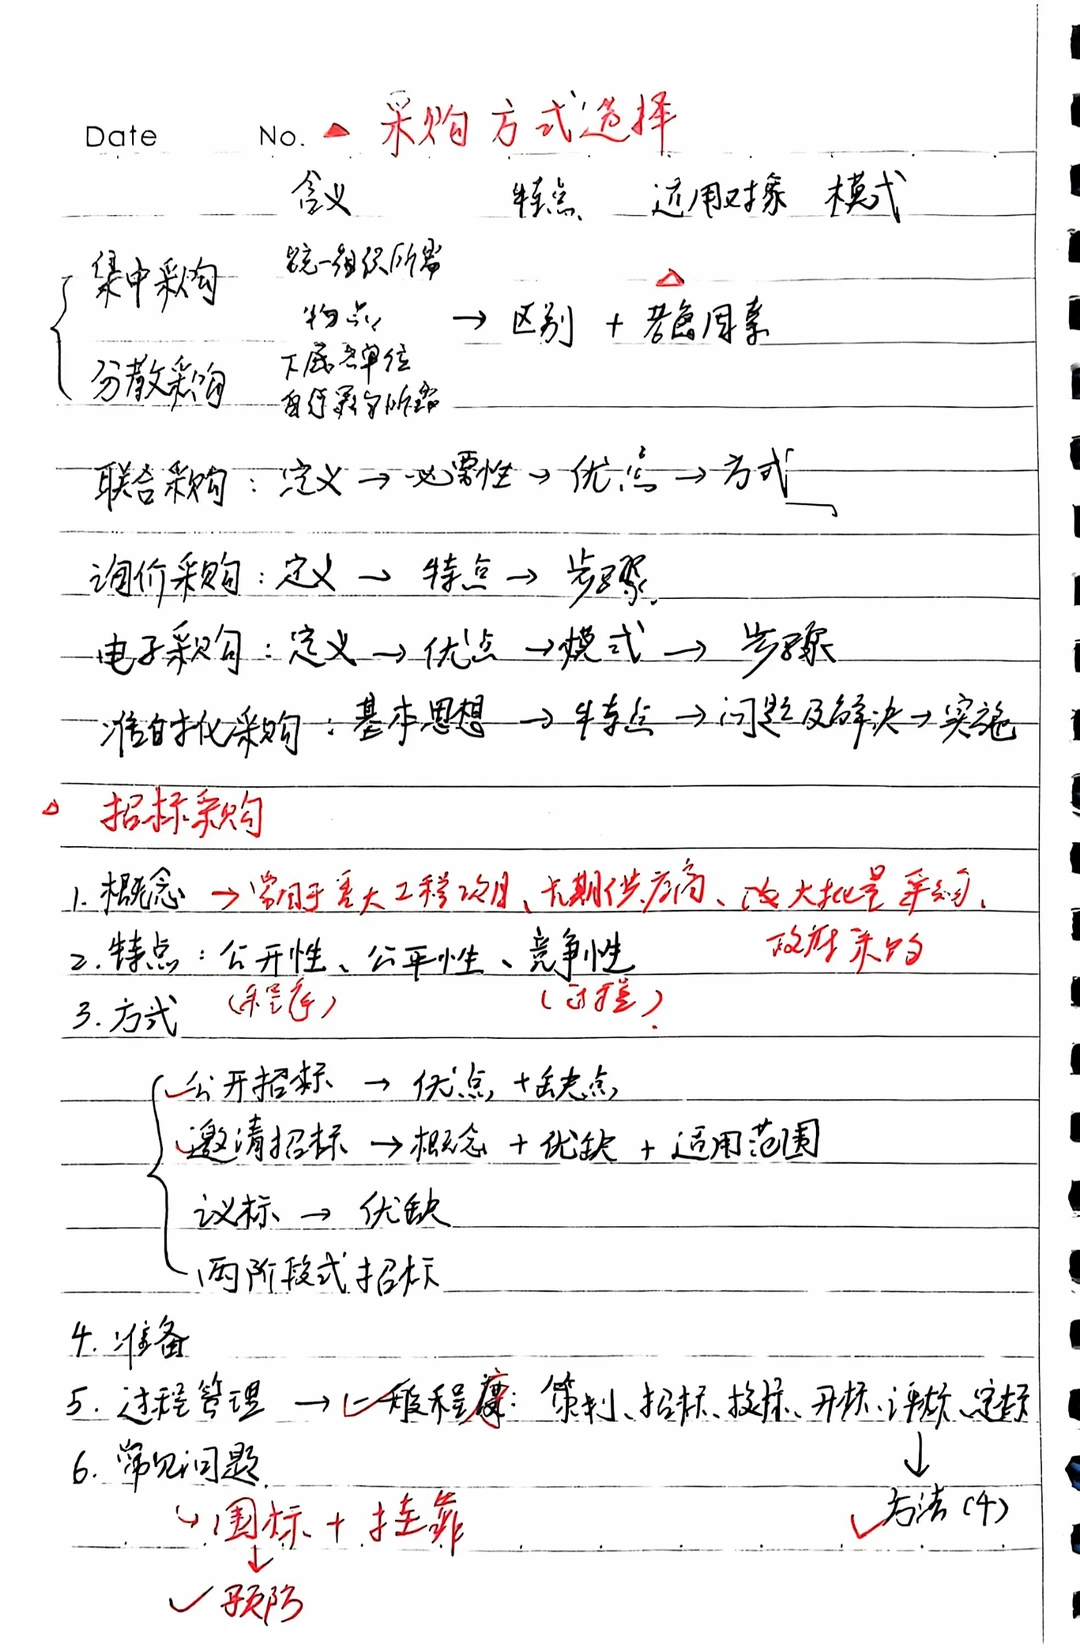 Date No. 采购方式选择
含义 特点 适用对象 模式
集中采购 统一组织所需
物品 → 区别 + 考虑因素
分散采购 下属各单位
自行采购所需
联合采购：定义→必要性→优点→方式
询价采购：定义→特点→步骤
电子采购：定义→优点→模式→步骤
准时化采购：基本思想→特点→问题及解决→实施
招标采购
1. 概念→常用于重大工程项目、长期供应商、或大批量采购、
政府采购
2. 特点：公开性、公平性、竞争性
(程度) (过程)
3. 方式
公开招标→优点+缺点
邀请招标→概念+优缺+适用范围
议标→优缺
两阶段式招标
4. 准备
5. 过程管理→一般程序：策划、招标、投标、开标、评标、定标
6. 常见问题
方法(4)
围标+挂靠
预防